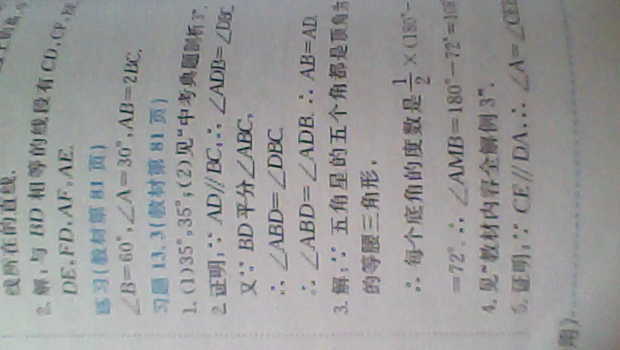 线所在的直线.
2. 解:与 BD 相等的线段有 CD,CF,
DE,FD,AF,AE.
练习(教材第 81 页)
∠B=60°,∠A=30°,AB=2BC.
习题 13.3(教材第 81 页)
1. (1)35°,35°;(2)见“中考典题剖析3”.
2. 证明:∵ AD∥BC,∴ ∠ADB=∠DBC.
又∵ BD平分∠ABC,
∴ ∠ABD=∠DBC.
∴ ∠ABD=∠ADB. ∴ AB=AD.
3. 解:∵ 五角星的五个角都是顶角为
的等腰三角形,
∴ 每个底角的度数是 1/2 ×(180°-
=72°. ∴ ∠AMB=180°-72°=108°
4. 见“教材内容全解例 3”.
5. 证明:∵ CE∥DA,∴ ∠A=∠CEB